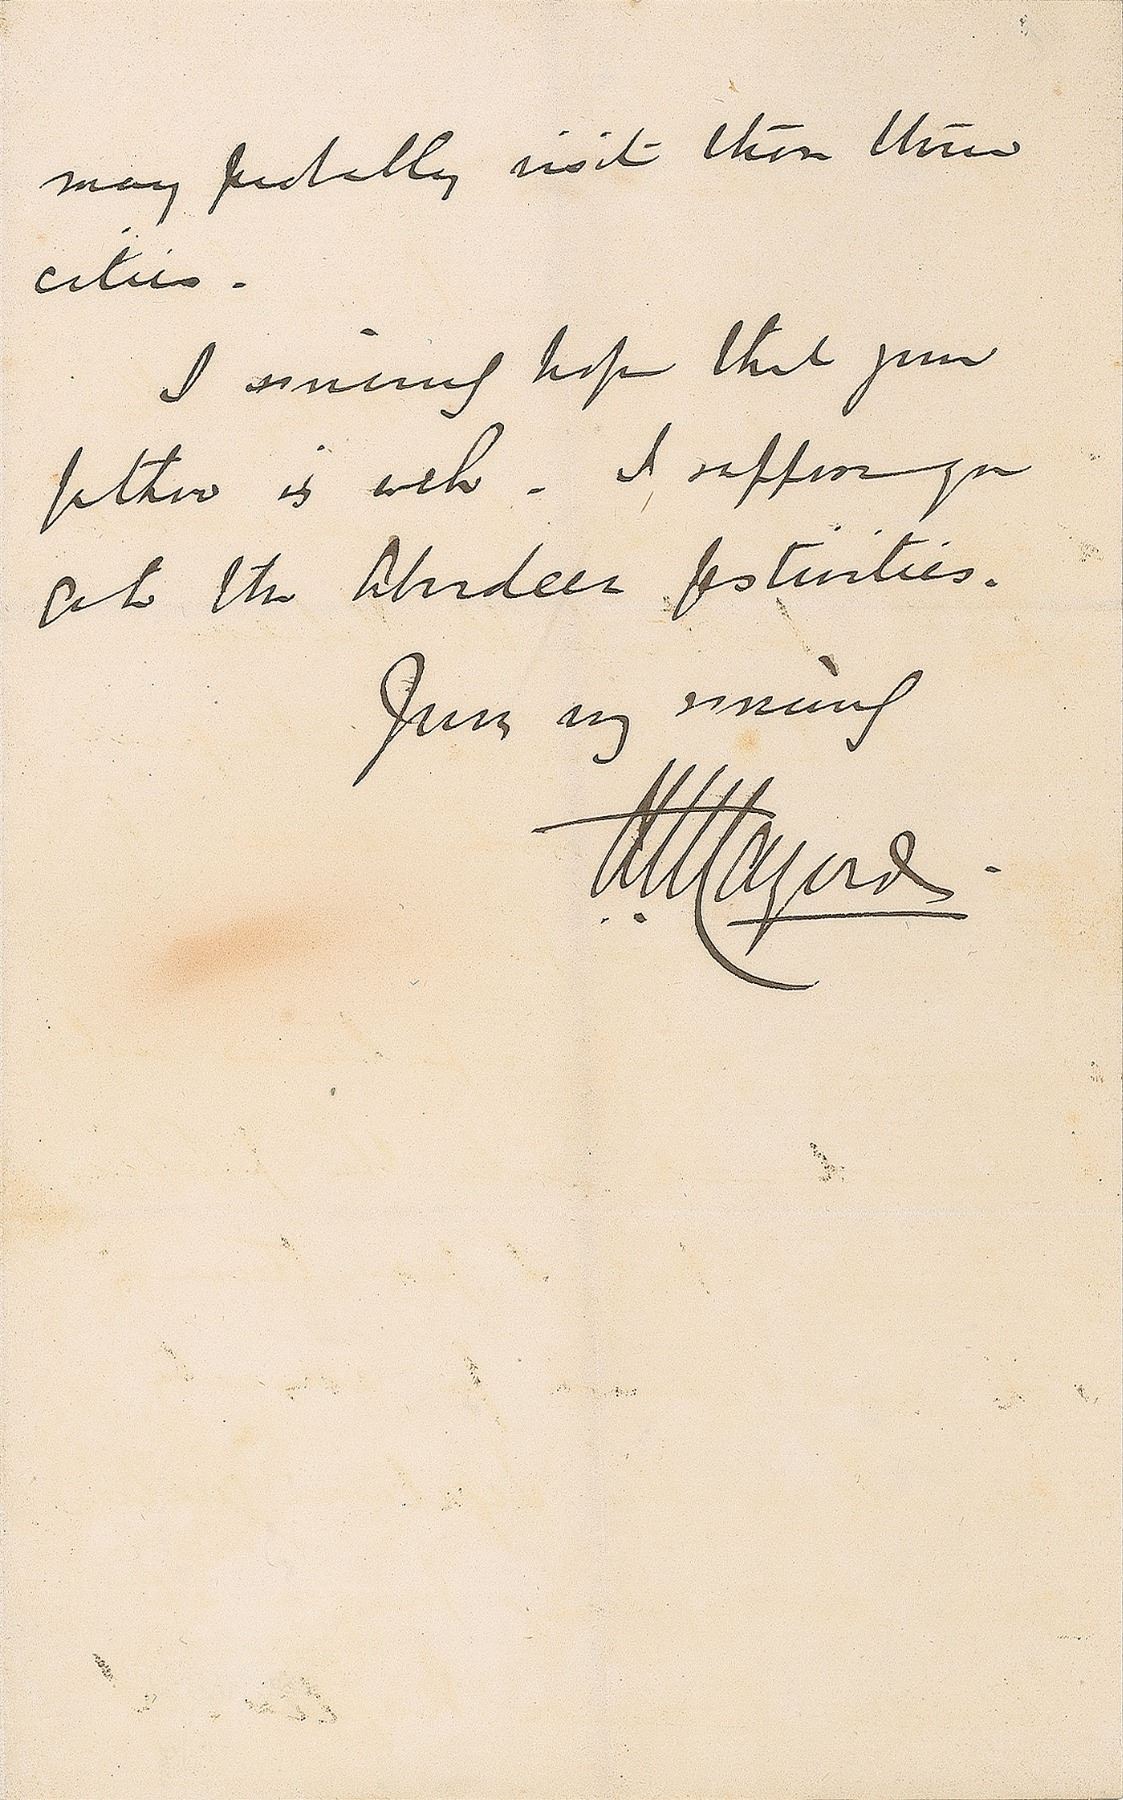 may probably visit these three
cities.
I sincerely hope that your
father is well - I suppose you
the Aberdeen festivities.
Yours very sincerely